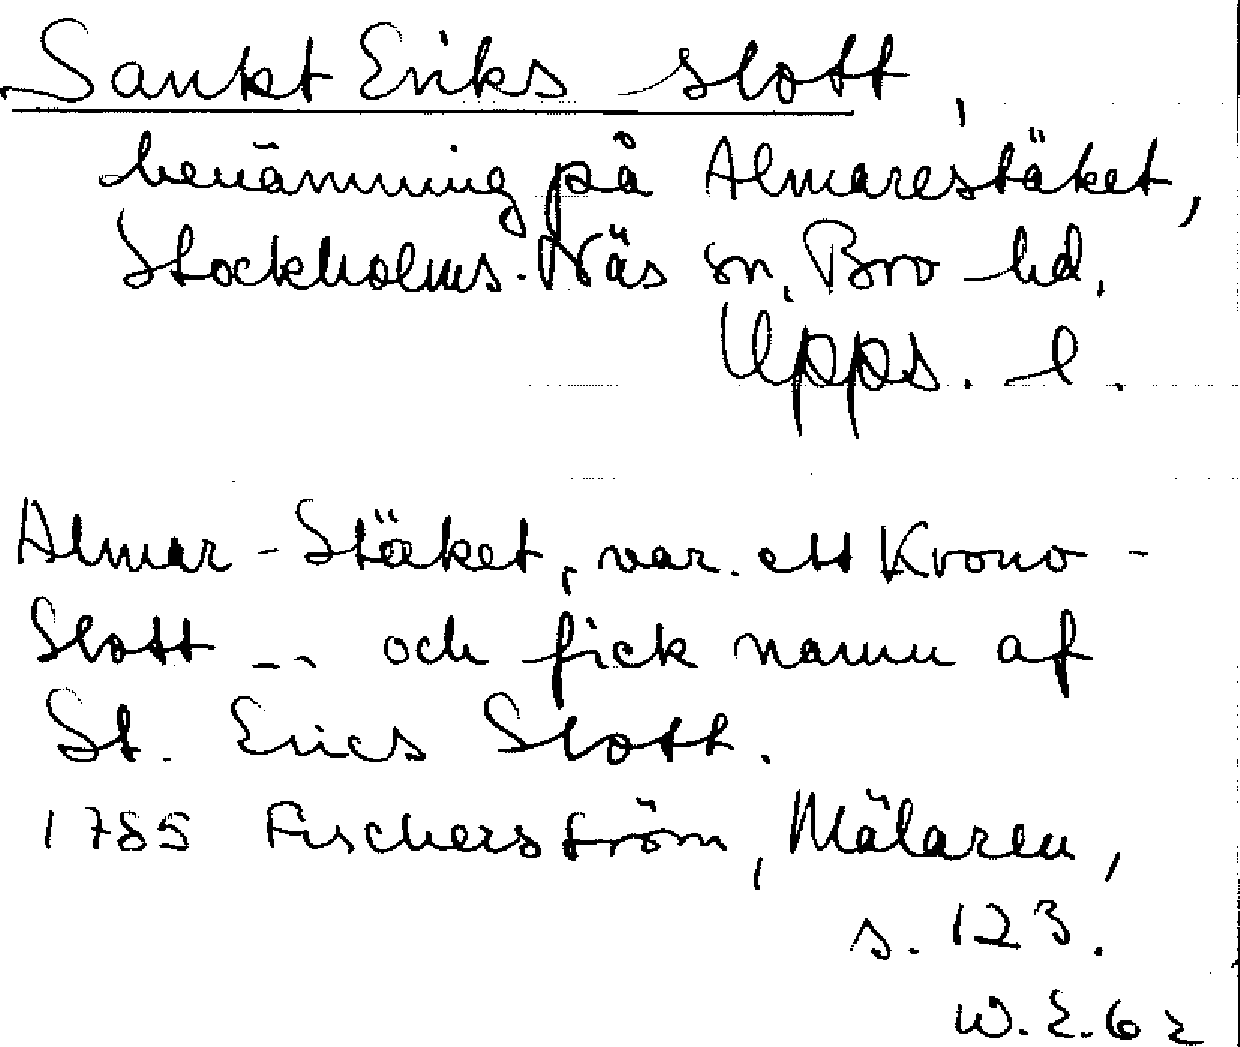 Sankt Eriks slott,
benämning på Almarestäket,
Stockholms-Näs sn, Bro hd,
Upps. l.
Almar-Stäket, var ett Krono-
Slott -- och fick namn af
St. Erics Slott.
1785 Fischerström, Mälaren,
s. 123.
W.E.62